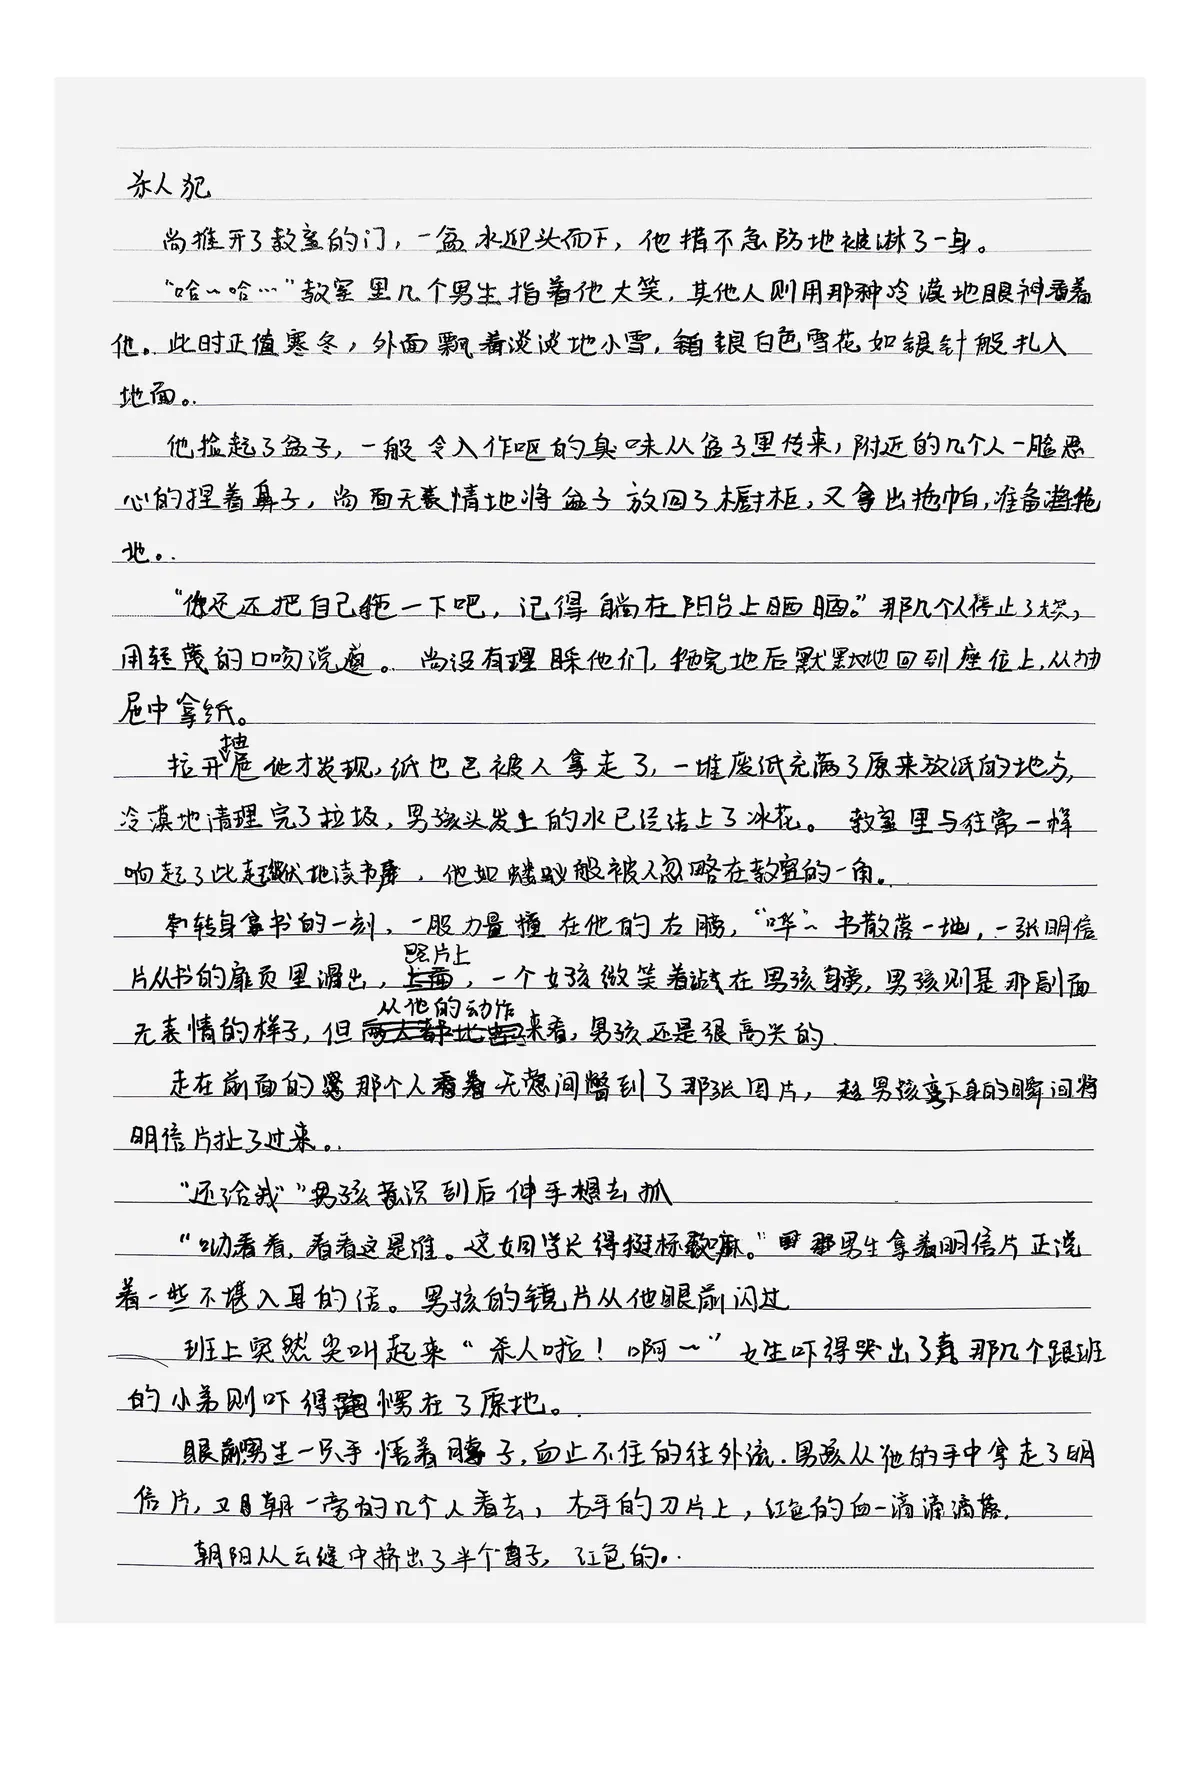 杀人犯
尚推开了教室的门，一盆水迎头而下，他措不急防地被淋了一身。
“哈～哈…”教室里几个男生指着他大笑，其他人则用那种冷漠地眼神看着
他。此时正值寒冬，外面飘着淡淡地小雪，银白色雪花如银针般扎入
地面。
他捡起了盆子，一般令人作呕的臭味从盆子里传来，附近的几个人一脸恶
心的捏着鼻子，尚面无表情地将盆子放回了橱柜，又拿出拖帕，准备拖
地。
“你还还把自己拖一下吧，记得躺在阳台上晒晒。”那几个人停止了大笑，
用轻蔑的口吻说道。尚没有理睬他们，拖完地后默默地回到座位上，从抽
屉中拿纸。
拉开抽屉他才发现，纸也已被人拿走了，一堆废纸充满了原来放纸的地方，
冷漠地清理完了垃圾，男孩头发上的水已经结上了冰花。教室里与往常一样
响起了此起彼伏地读书声，他如蝼蚁般被人忽略在教室的一角。
转身拿书的一刻，一股力量撞在他的右胳，“哗～书散落一地，一张明信
片从书的扉页里漏出，照片上，一个女孩微笑着站在男孩身旁，男孩则是那副面
无表情的样子，但从他的动作来看，男孩还是很高兴的
走在前面的那个人无意间瞥到了那张图片，趁男孩弯下身的瞬间将
明信片扯了过来。
“还给我”男孩意识到后伸手想去抓
“呦看看，看看这是谁。这女同学长得挺标致嘛。”那男生拿着明信片正说
着一些不堪入耳的话。男孩的镜片从他眼前闪过
班上突然尖叫起来“杀人啦！啊～”女生吓得哭出了声那几个跟班
的小弟则吓得愣在了原地。
眼前男生一只手捂着脖子，血止不住的往外流．男孩从他的手中拿走了明
信片，又朝一旁的几个人看去，右手的刀片上，红色的血一滴滴滴落．
朝阳从云缝中挤出了半个身子，红色的。